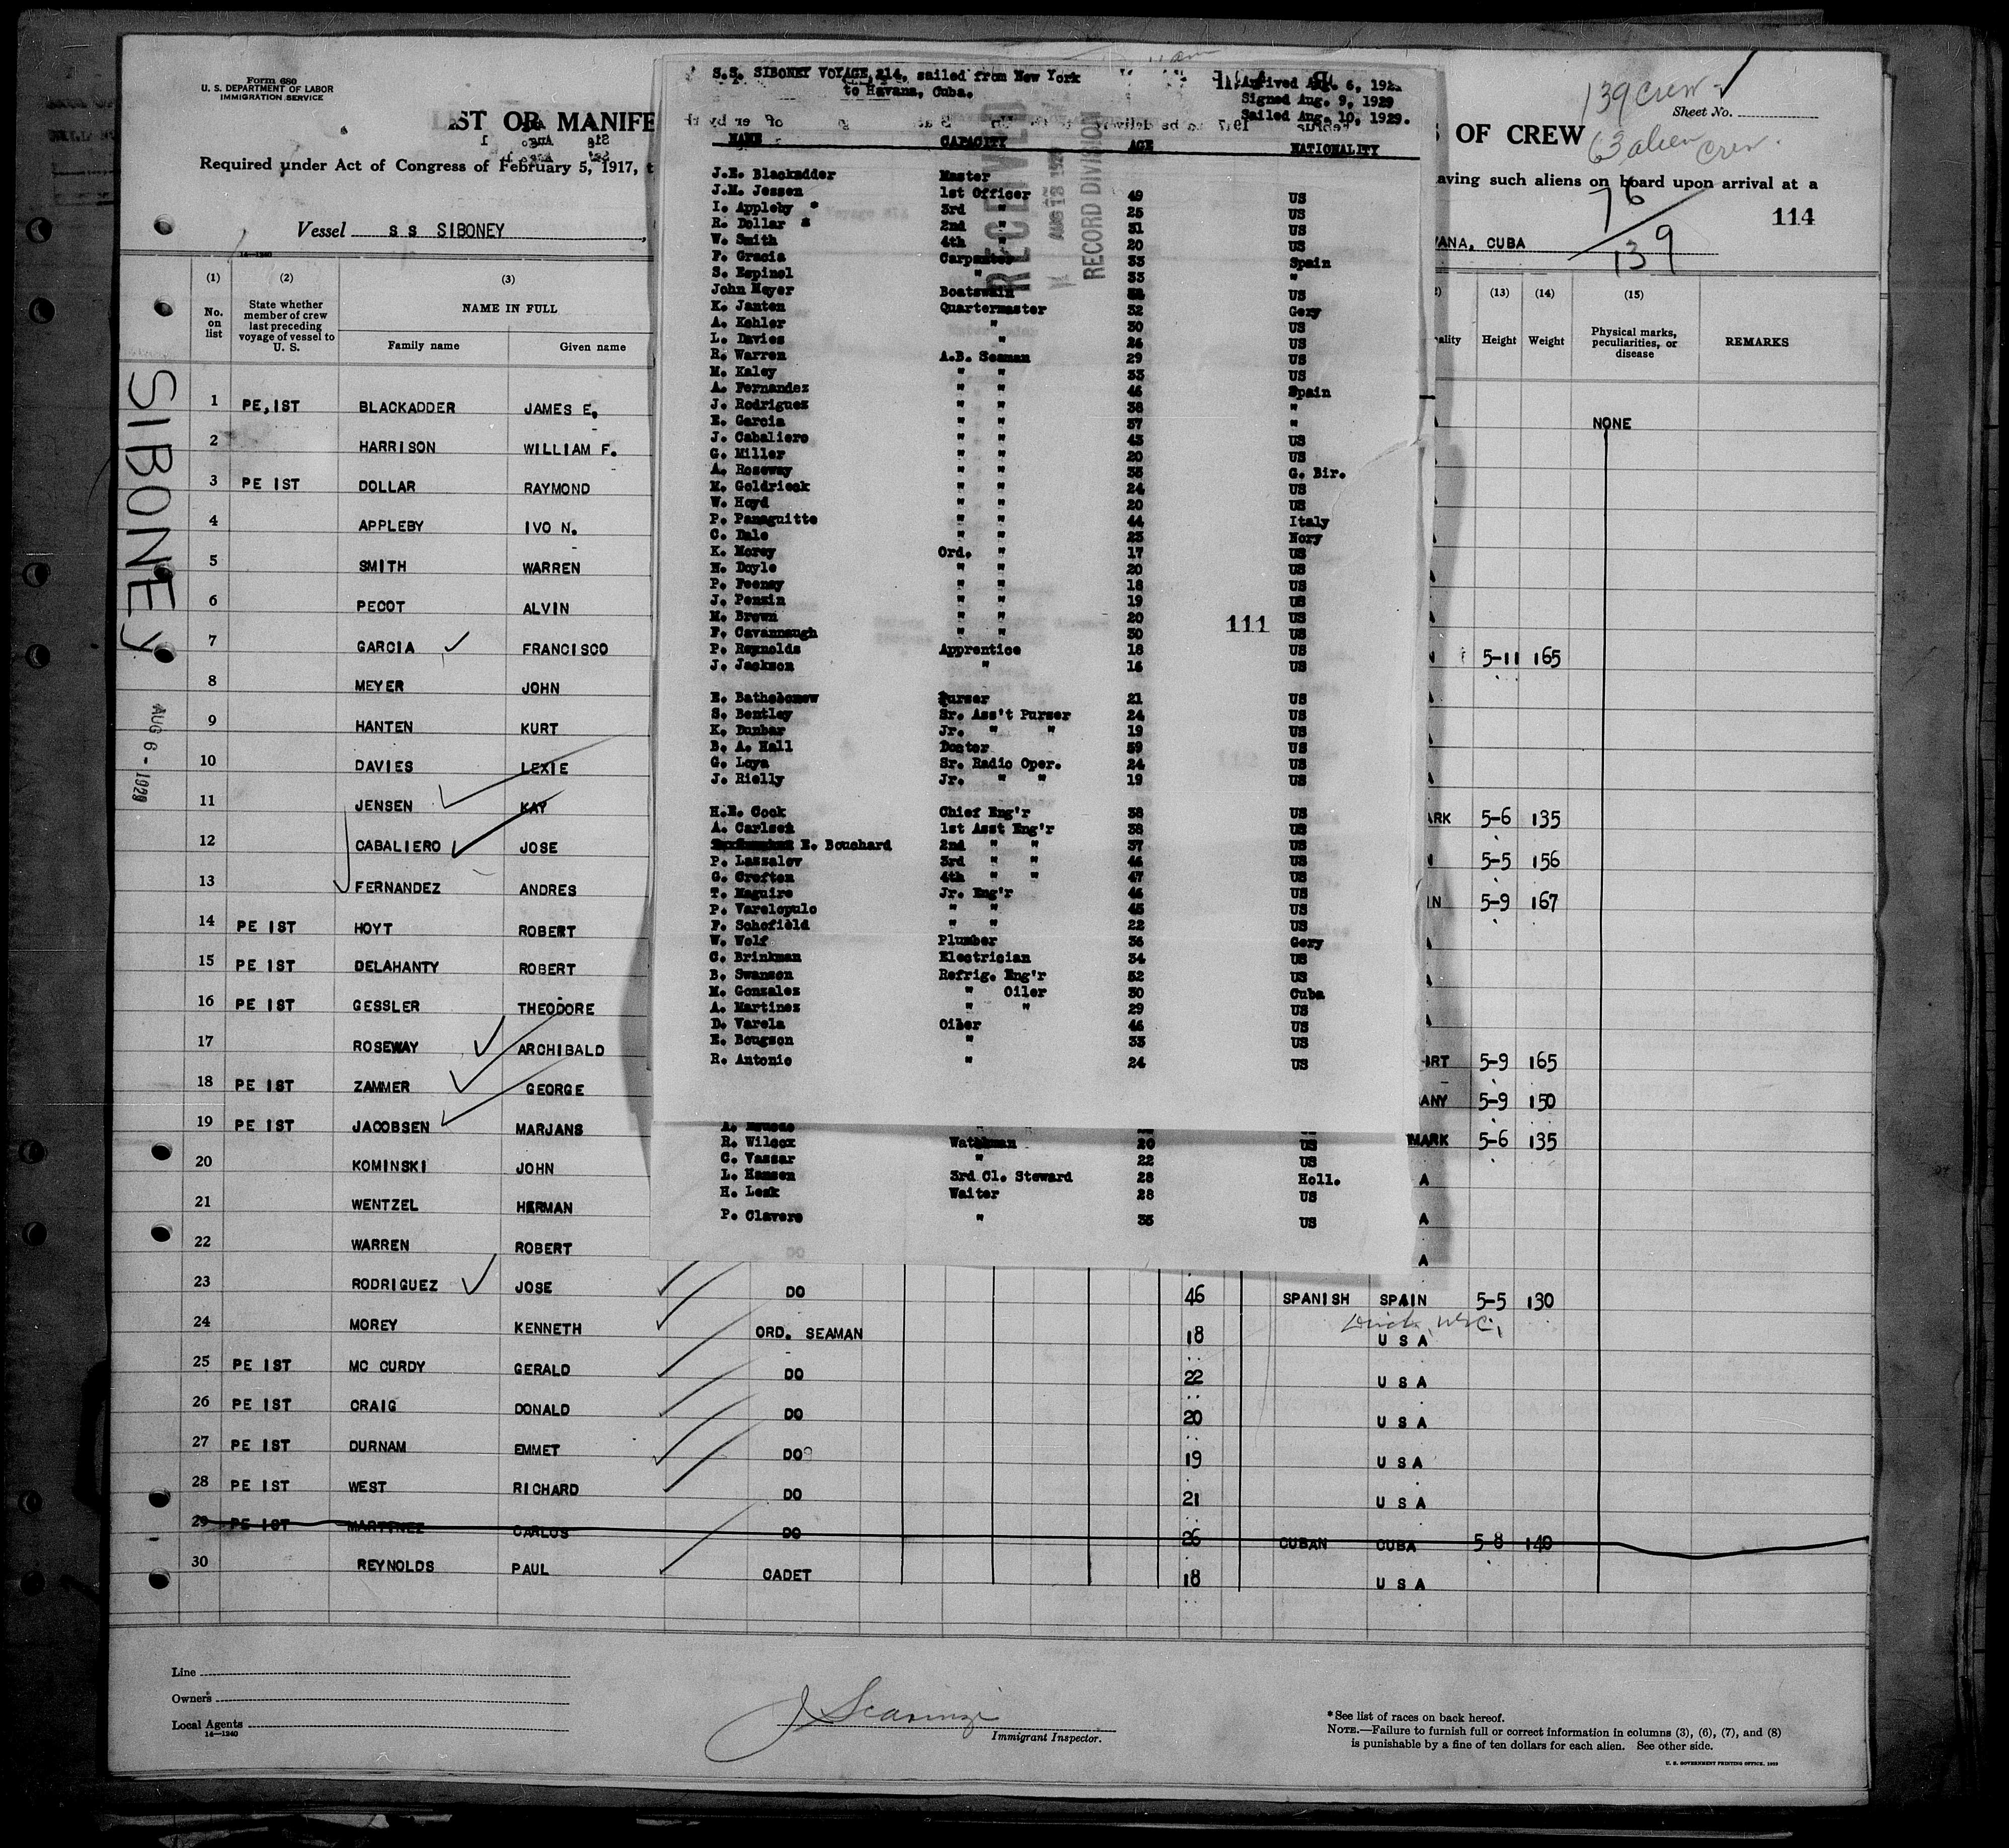 Form 680
U. S. DEPARTMENT OF LABOR
IMMIGRATION SERVICE
ST OR MANIFE
OF CREW
139 crew
63 alien crew.
Sheet No.
Required under Act of Congress of February 5, 1917, t
aving such aliens on board upon arrival at a
76
139
114
Vessel S S SIBONEY
VANA, CUBA
14—1240
(1) (2) (3) (13) (14) (15)
No. on list
State whether member of crew last preceding voyage of vessel to U. S.
NAME IN FULL
Family name Given name
ality Height Weight Physical marks, peculiarities, or disease REMARKS
SIBONEY
AUG 6 - 1929
1 PE,IST BLACKADDER JAMES E, NONE
2 HARRISON WILLIAM F.
3 PE IST DOLLAR RAYMOND
4 APPLEBY IVO N.
5 SMITH WARREN
6 PECOT ALVIN
7 GARCIA FRANCISCO 5-11 165
8 MEYER JOHN
9 HANTEN KURT
10 DAVIES LEXIE
11 JENSEN KAY ARK 5-6 135
12 CABALIERO JOSE 5-5 156
13 FERNANDEZ ANDRES IN 5-9 167
14 PE IST HOYT ROBERT
15 PE IST DELAHANTY ROBERT
16 PE IST GESSLER THEODORE
17 ROSEWAY ARCHIBALD IRT 5-9 165
18 PE IST ZAMMER GEORGE ANY 5-9 150
19 PE IST JACOBSEN MARJANS MARK 5-6 135
20 KOMINSKI JOHN A
21 WENTZEL HERMAN A
22 WARREN ROBERT A
23 RODRIGUEZ JOSE DO 46 SPANISH SPAIN 5-5 130
24 MOREY KENNETH ORD. SEAMAN 18 U S A
25 PE IST MC CURDY GERALD DO 22 U S A
26 PE IST CRAIG DONALD DO 20 U S A
27 PE IST DURNAM EMMET DO 19 U S A
28 PE IST WEST RICHARD DO 21 U S A
29 PE IST MARTINEZ CARLOS DO 26 CUBAN CUBA 5-8 140
30 REYNOLDS PAUL CADET 18 U S A
S.S. SIBONEY VOYAGE, 214, sailed from New York
to Havana, Cuba.
Arrived Aug. 6, 192
Signed Aug. 9, 1929
Sailed Aug. 10, 1929.
RECEIVED
AUG 13 1929
RECORD DIVISION
NAME CAPACITY AGE NATIONALITY
J.E. Blackadder Master
J.M. Jessen 1st Officer 49 US
I. Appleby * 3rd " 25 US
R. Dollar * 2nd " 31 US
W. Smith 4th " 20 US
F. Gracia Carpenter 33 Spain
S. Espinel " 33 "
John Meyer Boatswain US
K. Janten Quartermaster 32 Gery
A. Kehler " 30 US
L. Davies " 26 US
R. Warren A.B. Seaman 29 US
M. Kaley " " 33 US
A. Fernandez " " 46 Spain
J. Rodriguez " " 38 "
E. Garcia " " 37 "
J. Cabaliero " " 43 US
G. Miller " " 20 US
A. Roseway " " 35 G. Bir.
M. Goldrick " " 24 US
W. Hoyd " " 20 US
P. Panaguitte " " 44 Italy
C. Dale " " 23 Nory
K. Morey Ord. " 17 US
H. Doyle " " 20 US
P. Feenay " " 18 US
J. Penzin " " 19 US
M. Brown " " 20 US
F. Cavannaugh " " 30 US
111
P. Reynolds Apprentice 18 US
J. Jackson " 16 US
E. Batheleomew Purser 21 US
S. Bentley Sr. Ass't Purser 24 US
K. Dunbar Jr. " " 19 US
B. A. Hall Doctor 59 US
G. Loya Sr. Radio Oper. 24 US
J. Rielly Jr. " " 19 US
H.E. Cook Chief Eng'r 38 US
A. Carlsen 1st Asst Eng'r 38 US
E. Bouchard 2nd " " 37 US
P. Lassalev 3rd " " 46 US
G. Crofton 4th " " 47 US
T. Maguire Jr. Eng'r 46 US
P. Varelopulo " " 45 US
F. Schofield " " 22 US
W. Wolf Plumber 36 Gery
C. Brinkman Electrician 34 US
B. Swanson Refrig. Eng'r 52 US
M. Gonzales " Oiler 30 Cuba
A. Martinez " " 29 US
D. Varela Oiler 46 US
E. Bougson " 33 US
R. Antonio " 24 US
R. Wilcox Watchman 20 US
C. Vassar " 22 US
L. Hansen 3rd Cl. Steward 28 Holl.
H. Leak Waiter 28 US
P. Clavere " 35 US
Line
Owners
Local Agents
14—1240
J Scarinzi
Immigrant Inspector.
* See list of races on back hereof.
NOTE.—Failure to furnish full or correct information in columns (3), (6), (7), and (8)
is punishable by a fine of ten dollars for each alien. See other side.
U. S. GOVERNMENT PRINTING OFFICE, 1929